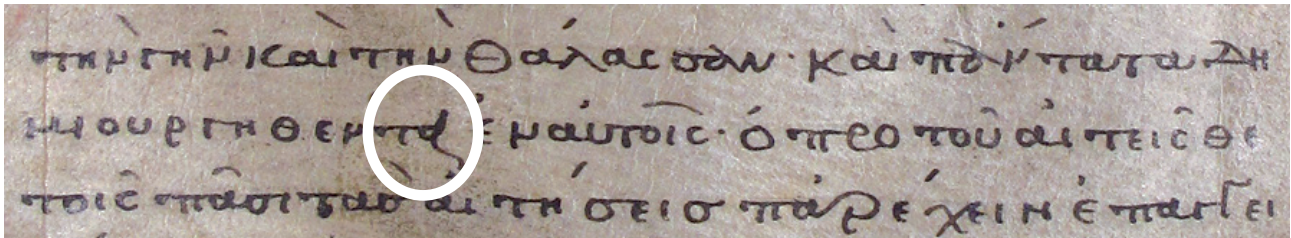 τὴν γῆν καὶ τὴν θάλασσαν· καὶ πάντα τα δη
μιουργηθεντα ἐν αὐτοῖς· ὁ προ τοῦ αἰτεῖσθε
τοῖς πᾶσι τὰς αἰτήσεις παρέχειν ἐπαγγει